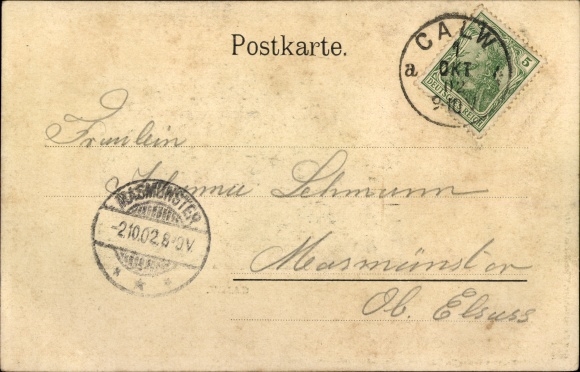 Postkarte.
CALW
1
OKT
02
9-10
a
5
DEUTSCHES REICH
Fräulein
Johanna Lehmann
MASMÜNSTER
-2.10.02.8-9V.
Masmünster
Ob. Elsass